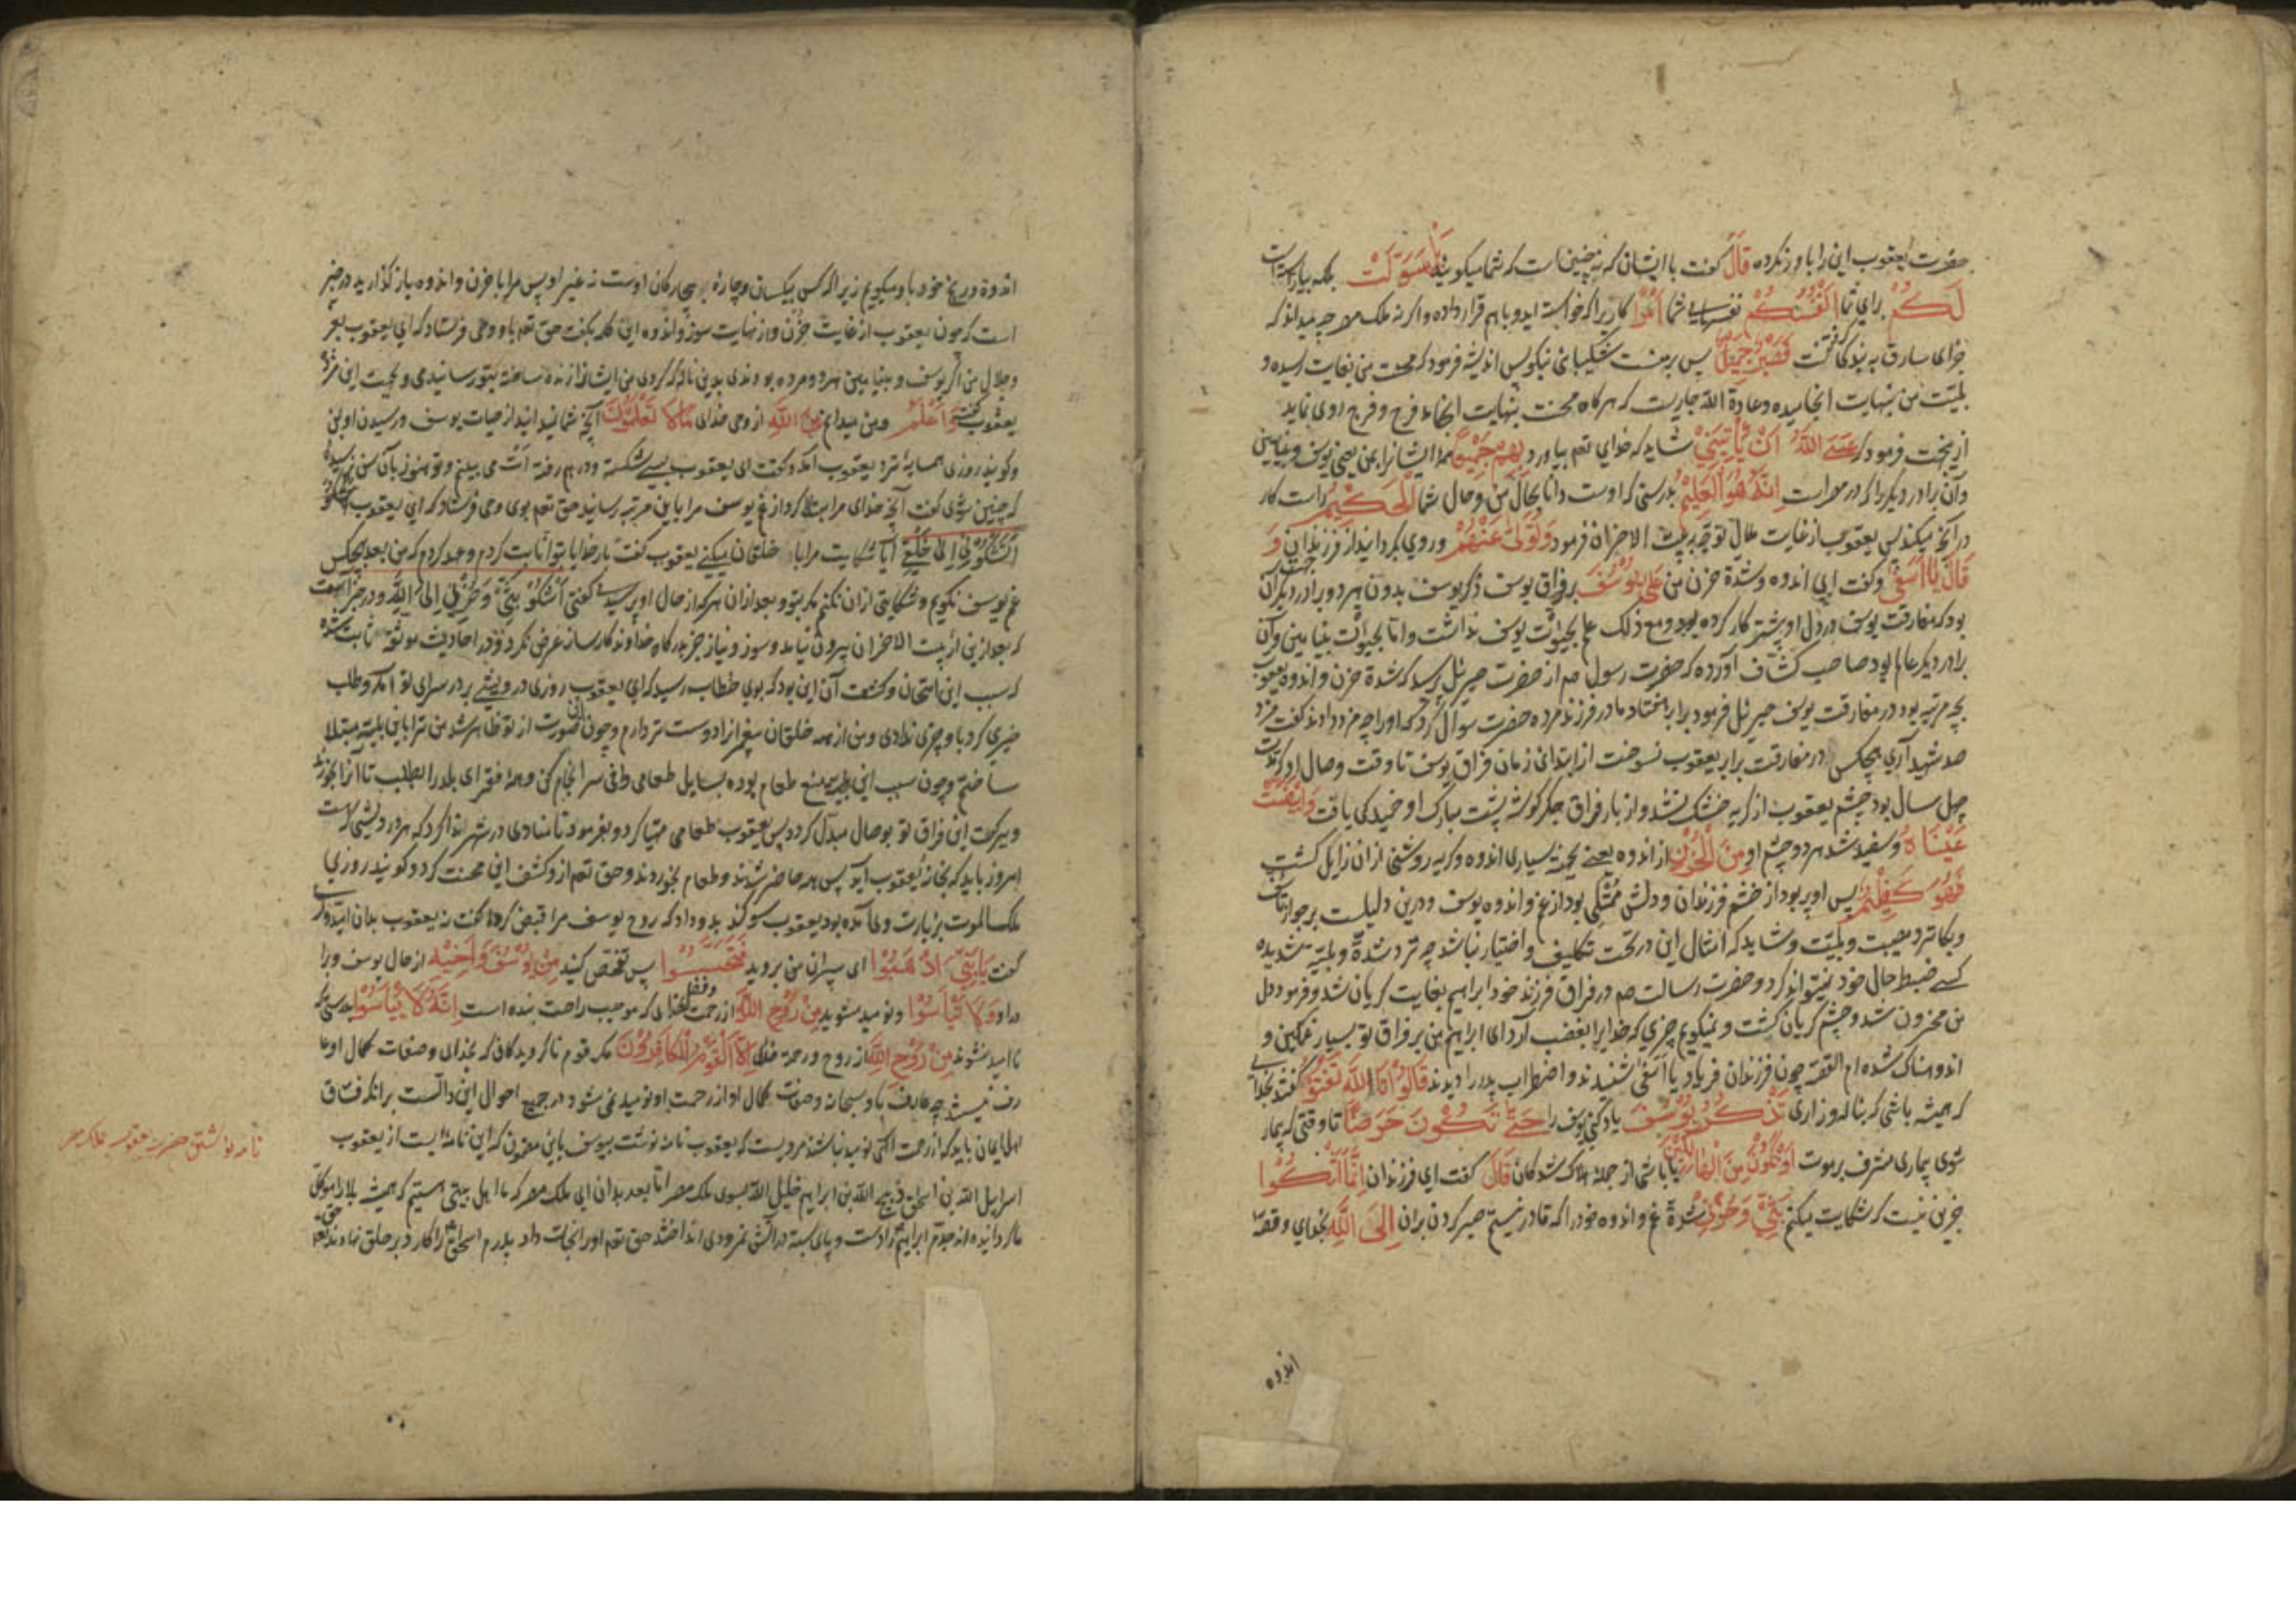 حضرت یعقوب این را باور نکرده قَالَ گفت با ایشان که نه چنین است که شما میگویید بَلْ سَوَّلَتْ بلکه بیاراسته است
لَكُمْ برای شما اَنْفُسُكُمْ نفسهای شما اَمْرًا کاریرا که خواسته اید و باهم قرار داده و اگر نه ملک مصر چه میداند که
جزای سارق به بندگی گرفتن است فَصَبْرٌ جَمِیْلٌ پس بر منست شکیبائی نیکو پس اندیشه فرمود که محنت من بغایت رسیده و
بلیّت من بنهایت انجامیده و عادة الله جاریست که هرگاه محنت بنهایت انجامد فرح و فرج روی نماید
ازین جهت فرمود که عَسَی اللّٰهُ اَنْ یَّاْتِیَنِیْ شاید که خدای تعم بیاورد بِهِمْ جَمِیْعًا همه ایشانرا بمن یعنی یوسف و بنیامین
و آن برادر دیگر را که در مصر است اِنَّهٗ هُوَ الْعَلِیْمُ بدرستی که اوست دانا بحال من و حال شما الْحَكِیْمُ راست کار
در آنچه میکند پس یعقوب از غایت ملال توجه به بیت الاحزان فرمود وَتَوَلّٰی عَنْهُمْ و روی بگردانید از فرزندان وَ
قَالَ یَا اَسَفٰی و گفت ای اندوه و شدة حزن من عَلٰی یُوْسُفَ بر فراق یوسف ذکر یوسف بدون هر دو برادر دیگر از آن
بود که مفارقت یوسف در دل او بیشتر کار کرده بود و مع ذلک علم بحیوٰت یوسف نداشت و امّا بحیوٰت بنیامین و آن
برادر دیگر عالم بود صاحب کشّاف آورده که حضرت رسول صم از حضرت جبرئیل پرسید که شدة حزن و اندوه یعقوب
بچه مرتبه بود در مفارقت یوسف جبرئیل فرمود برابر هفتاد مادر فرزند مرده حضرت سؤال کرد که او را چه مزد دادند گفت مزد
صد شهید آری هیچکس در مفارقت برابر یعقوب نسوخت از ابتدای زمان فراق یوسف تا وقت وصال او که مدت
چهل سال بود چشم یعقوب از گریه خشک نشد و از بار فراق جگر گوشه پشت مبارک او خمیدگی یافت وَابْیَضَّتْ
عَیْنَاهُ و سفید شد هر دو چشم او مِنَ الْحُزْنِ از اندوه یعنی بجهة بسیاری اندوه و گریه روشنی از آن زایل گشت
فَهُوَ كَظِیْمٌ پس او پر بود از خشم فرزندان و دلش ممتلی بود از غم و اندوه یوسف و درین دلیلست بر جواز تأسف
و بکا نزد مصیبت و بلیّت و شاید که امثال این در تحت تکلیف و اختیار نباشد چه نزد شدة و بلیّه شدیده
کسی ضبط حال خود نمیتواند کرد و حضرت رسالت صم در فراق فرزند خود ابراهیم بغایت گریان شد و فرمود دل
من محزون شد و چشم گریان گشت و نمیگویم چیزی که خدایرا بغضب آرد ای ابراهیم من بر فراق تو بسیار غمگین و
اندوهناک شده ام القصه چون فرزندان فریاد یا اسفی شنیدند و اضطراب پدر را دیدند قَالُوْا تَاللّٰهِ تَفْتَؤُ گفتند بخدای
که همیشه باشی که بناله و زاری تَذْكُرُ یُوْسُفَ یاد کنی یوسف را حَتّٰی تَكُوْنَ حَرَضًا تا وقتی که بیمار
شوی بیماری مشرف بر موت اَوْ تَكُوْنَ مِنَ الْهَالِكِیْنَ یا باشی از جمله هلاک شدگان قَالَ گفت ای فرزندان اِنَّمَا اَشْكُوْا
جزین نیست که شکایت میکنم بَثِّیْ وَحُزْنِیْ شدة غم و اندوه خود را که قادر نیستم صبر کردن بر آن اِلَی اللّٰهِ بخدای و قصّه
اندوه
اندوه دریغ خود باو میگویم زیرا که کس بیکسان و چاره بیچارگان اوست نه غیر او پس مرا با حزن و اندوه باز گذارید در خبر
است که چون یعقوب از غایت حزن و از نهایت سوز و اندوه این کلمه بگفت حق تعم باو وحی فرستاد که ای یعقوب بعز
و جلال من اگر یوسف و بنیامین هر دو مرده بودندی بدین ناله که کردی من ایشانرا زنده ساخته بتو رسانیدمی و بجهت این مژده
یعقوب گفت وَاَعْلَمُ و من میدانم مِنَ اللّٰهِ از وحی خدای مَا لَا تَعْلَمُوْنَ آنچه شما نمیدانید از حیات یوسف و رسیدن او بمن
و گویند روزی همسایهٔ نزد یعقوب آمد و گفت ای یعقوب بسی شکسته و درهم رفته ات می بینم و تو هنوز بآن سن نرسیدهٔ
که چنین شوی گفت آنچه خدای مرا مبتلا کرد از غم یوسف مرا باین مرتبه رسانید حق تعم بوی وحی فرستاد که ای یعقوب
اَتَشْكُوْنِیْ اِلٰی خَلْقِیْ آیا شکایت مرا با خلقان میکنی یعقوب گفت بار خدایا بتو انابت کردم و عهد کردم که من بعد بهیچکس
غم یوسف نگویم و شکایتی از آن نکنم مگر بتو و بعد از آن هر که از حال او پرسیدی گفتی اَشْكُوْ بَثِّیْ وَحُزْنِیْ اِلَی اللّٰهِ و در خبر است
که بعد ازین از بیت الاحزان بیرون نیامد و سوز و نیاز جز بدرگاه خداوند کارساز عرض نکرد و در احادیث موثقه ثابت شده
که سبب این امتحان و کشف آن این بود که بوی خطاب رسید که ای یعقوب روزی درویشی بر در سرای تو آمد و طلب
چیزی کرد باو چیزی ندادی و من از همه خلقان پیغمبرانرا دوست تر دارم و چون این صورت از تو ظاهر شد من ترا باین بلیّه مبتلا
ساختم و چون سبب این بلیّه منع طعام بوده بسایل طعامی وافی سرانجام کن و همهٔ فقرای بلد را بطلب تا آنرا بخورند
و ببرکت این فراق تو بوصال مبدّل گردد پس یعقوب طعامی مهیّا کرد و بفرمود تا منادی در شهر ندا کرد که هر درویشی که هست
امروز باید که بخانهٔ یعقوب آید پس همه حاضر شدند و طعام بخوردند و حق تعم ازو کشف این محنت کرد و گویند روزی
ملک الموت بزیارت وی آمده بود یعقوب سوگند بدو داد که روح یوسف مرا قبض کردهٔ گفت نه یعقوب بدان امیدوار
گفت یَا بَنِیَّ اذْهَبُوْا ای پسران من بروید فَتَحَسَّسُوْا پس تفحّص کنید مِنْ یُوْسُفَ وَاَخِیْهِ از حال یوسف و برا
در او وَلَا تَیْاَسُوْا و نومید مشوید مِنْ رَوْحِ اللّٰهِ از رحمت و فضل خدای که موجب راحت بنده است اِنَّهٗ لَا یَیْاَسُ بدرستی که
ناامید نشوند مِنْ رَوْحِ اللّٰهِ از روح و رحمة خدای اِلَّا الْقَوْمُ الْكَافِرُوْنَ مگر قوم ناگرویدگان که بخدای و صفات کمال او عا
رف نیستند چه عارف باو سبحانه و صفات کمال او از رحمت او نومید نمی شود در جمیع احوال این دالّست بر آنکه فسّاق
اهل ایمان باید که از رحمت الهی نومید نباشند مرویست که یعقوب نامه نوشت بیوسف باین مضمون که این نامه ایست از یعقوب
اسرائیل الله بن اسحق ذبیح الله بن ابراهیم خلیل الله بسوی ملک مصر امّا بعد بدان ای ملک مصر که ما اهل بیتی هستیم که همیشه بلا را موکّل
ما گردانیده اند جدّم ابراهیم را دست و پای بسته در آتش نمرودی انداختند حق تعم او را نجات داد پدرم اسحٰق را کارد بر حلق نهادند
نامه نوشتن حضرت یعقوب بملک مصر